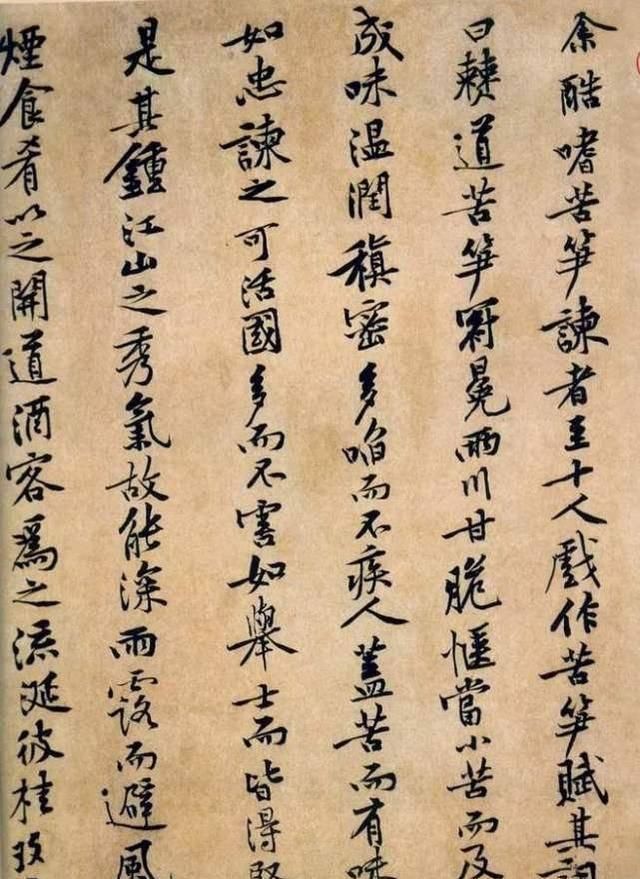 余酷嗜苦笋諫者至十人戲作苦笋賦其詞
曰僰道苦笋冠冕兩川甘脆愜當小苦而及
成味温潤稹密多啗而不疾人蓋苦而有味
如忠諫之可活國多而不害如舉士而皆得賢
是其鍾江山之秀氣故能深雨露而避風
煙食肴以之開道酒客爲之流涎彼桂玫